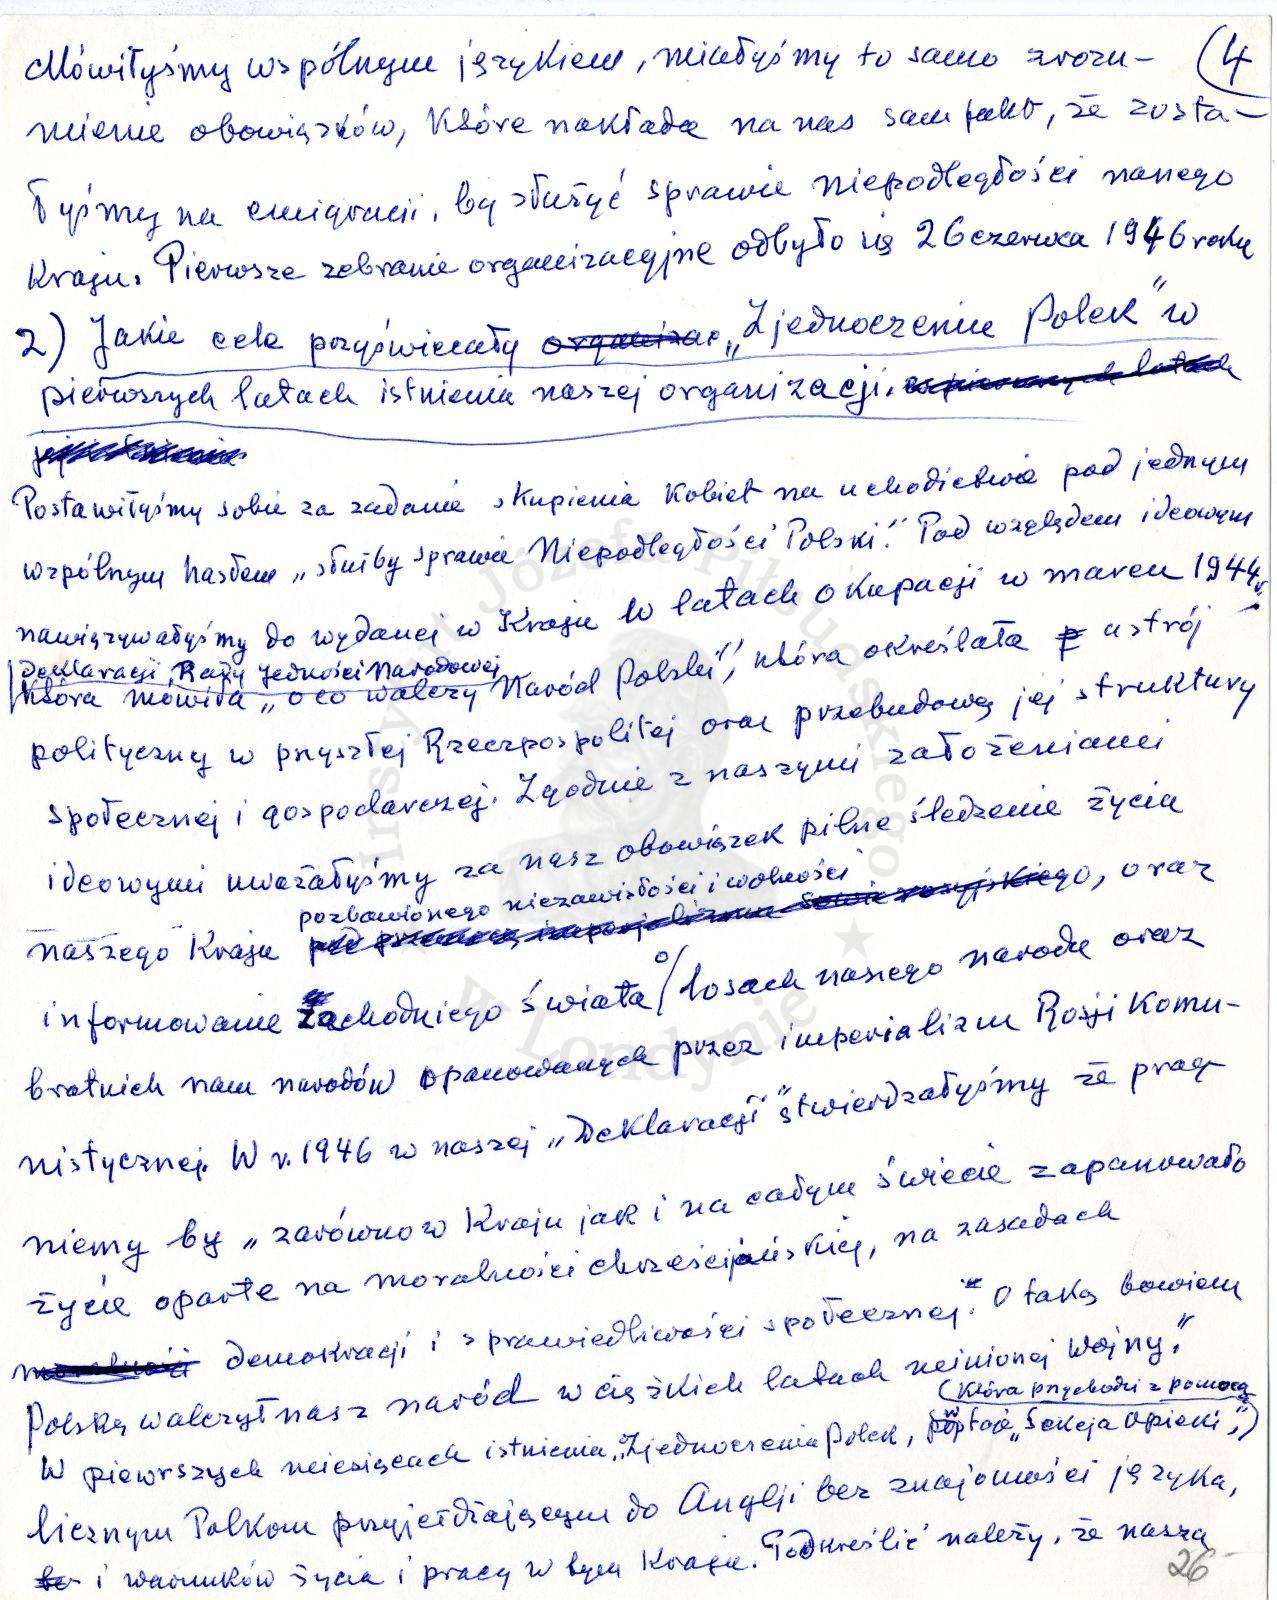 4
Mówiłyśmy wspólnym językiem, miałyśmy to samo zrozu-
mienie obowiązków, które nakłada na nas sam fakt, że zosta-
łyśmy na emigracji, by służyć sprawie niepodległości naszego
Kraju. Pierwsze zebranie organizacyjne odbyło się 26 czerwca 1946 roku
2) Jakie cele przyświecały organizac „Zjednoczeniu Polek" w
pierwszych latach istnienia naszej organizacji. w pierwszych latach
jej istnienia
Postawiłyśmy sobie za zadanie skupienia Kobiet na uchodźctwie pod jednym
wspólnym hasłem „służby sprawie Niepodległości Polski". Pod względem ideowym
nawiązywałyśmy do wydanej w Kraju w latach okupacji w marcu 1944 r.
Deklaracji Rady Jedności Narodowej
która mówiła „o co walczy Naród Polski", która określała ustrój
polityczny w przyszłej Rzeczpospolitej oraz przebudowę jej struktury
społecznej i gospodarczej. Zgodnie z naszymi założeniami
ideowymi uważałyśmy za nasz obowiązek pilne śledzenie życia
pozbawionego niezawisłości i wolności
naszego Kraju pod przemocą imperializmu sowie rosyjskiego, oraz
informowanie Zachodniego świata o losach naszego narodu oraz
bratnich nam narodów opanowanych przez imperializm Rosji Komu-
nistycznej. W r. 1946 w naszej „Deklaracji" stwierdzałyśmy że prag-
niemy by „zarówno w Kraju jak i na całym świecie zapanowało
życie oparte na moralności chrześcijańskiej, na zasadach
moralności demokracji i sprawiedliwości społecznej." O taką bowiem
Polskę walczył nasz naród w ciężkich latach minionej wojny."
(która przychodzi z pomocą
W pierwszych miesiącach istnienia „Zjednoczenia Polek, powstaje „Sekcja Opieki",)
licznym Polkom przyjeżdżającym do Anglji bez znajomości języka,
i warunków życia i pracy w tym Kraju. Podkreślić należy, że nasza
26
Instytut Józefa Piłsudskiego
w Londynie